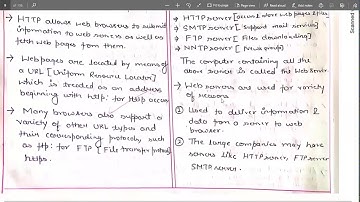 → HTTP allow web browsers to submit
information to web servers as well as
fetch web pages from them.
→ Webpages are located by means of
a URL [Uniform Resource Locator]
which is treated as an address
beginning with http: for http access
→ Many browsers also support a
variety of other URL types and
their corresponding protocols, such
as ftp: for FTP [File transfer protocol]
https.
→ HTTP server
→ SMTP server [Support mail services]
→ FTP server [Files downloading]
→ NNTP server [News group]
The computer containing all the
above server is called the Web server.
→ Web servers are used for variety
of reasons
① Used to deliver information &
data from a server to web
browser.
② The large companies may have
servers like HTTP server, FTP server
SMTP server.